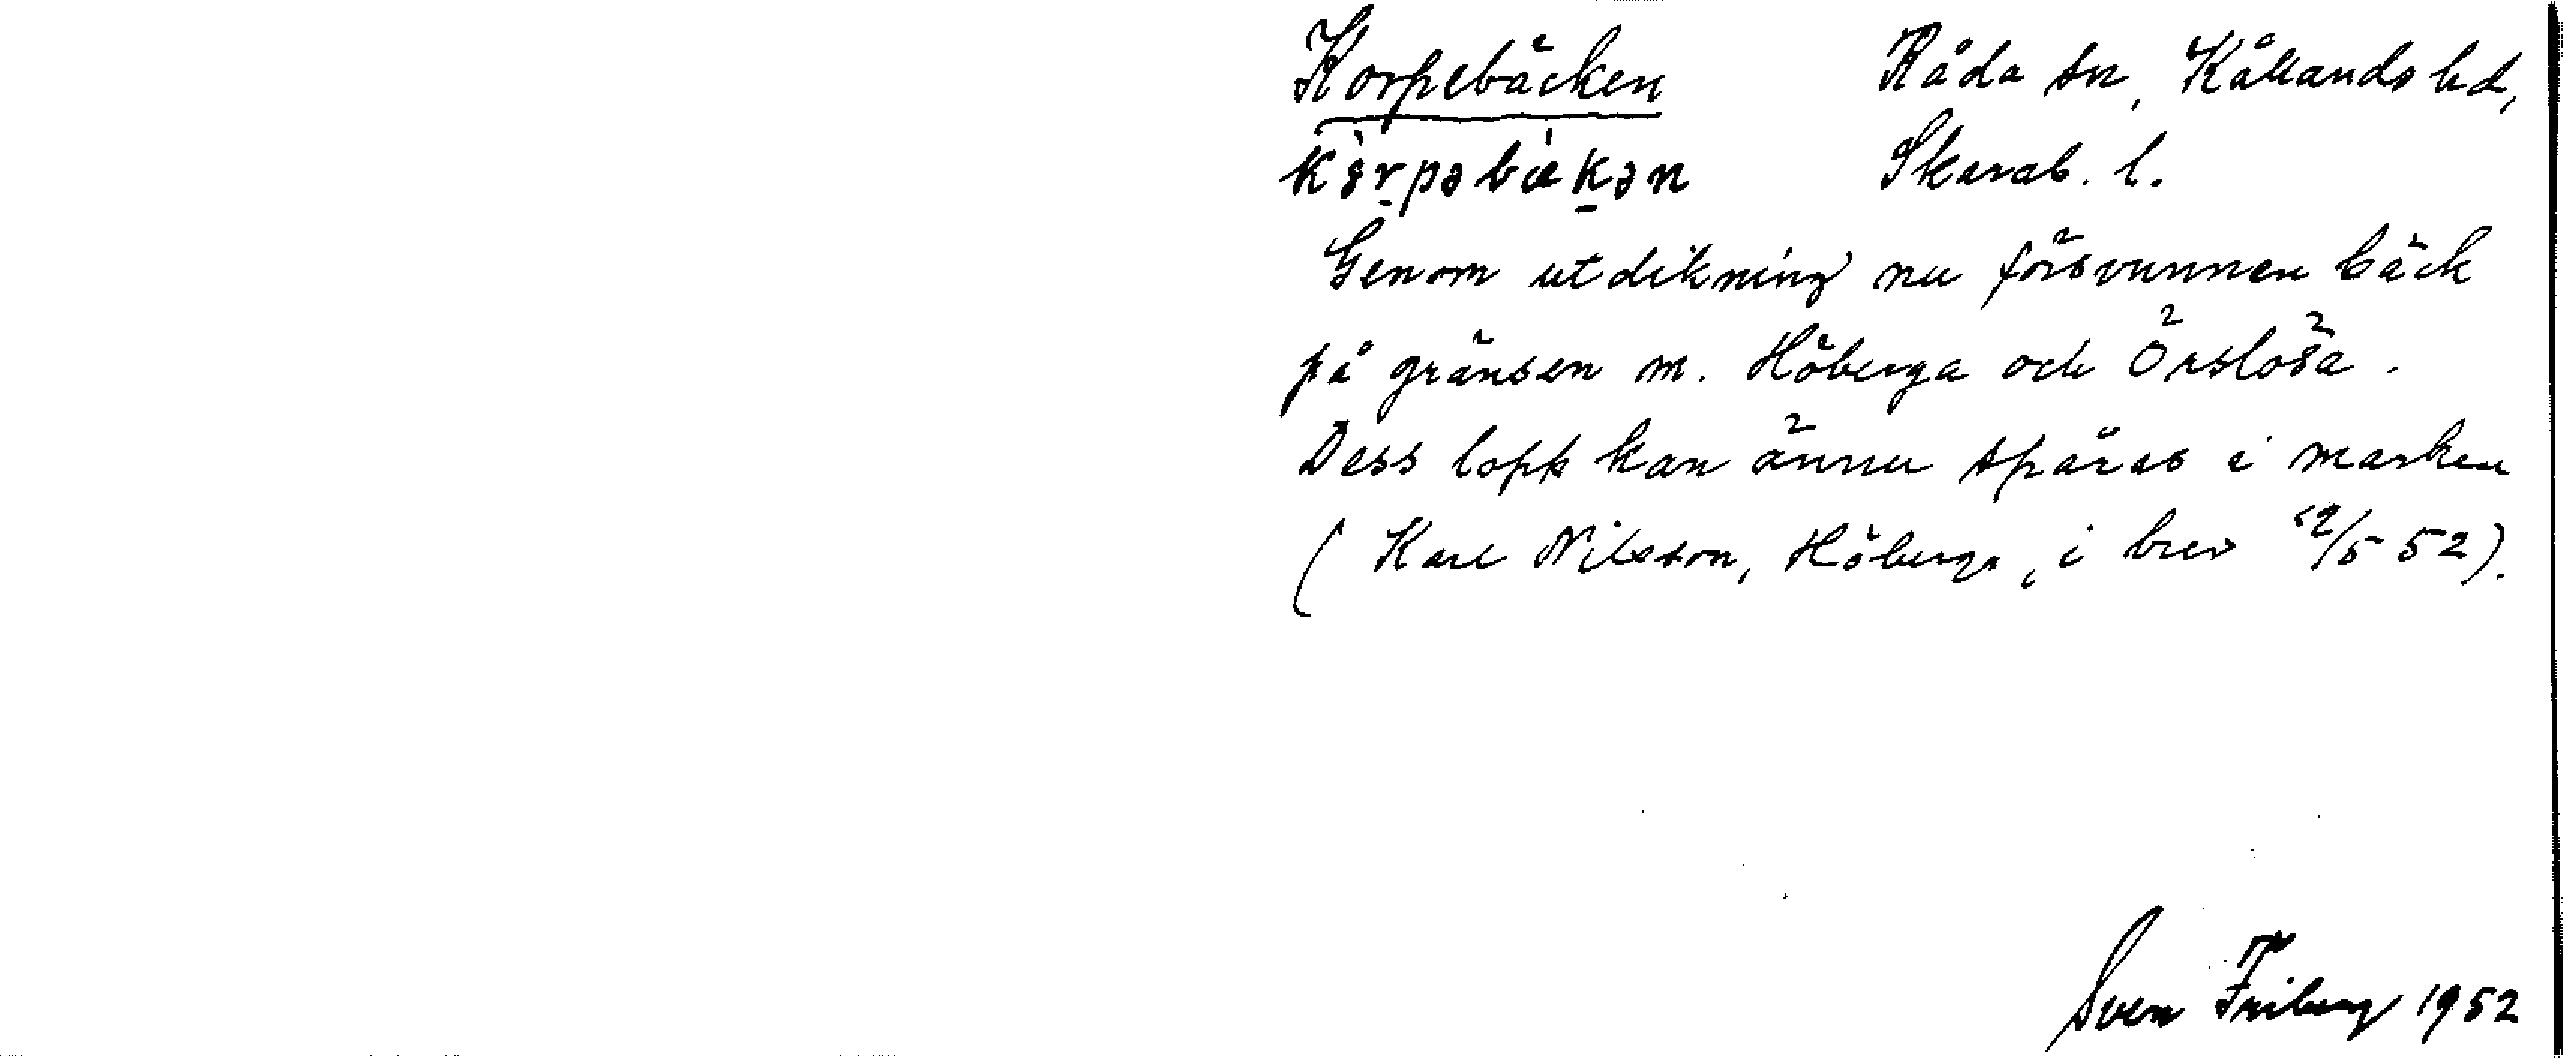 Korpebäcken Råda sn, Kållands hd,
kȯ̀rpəbækən Skarab. l.
Genom utdikning nu försvunnen bäck
på gränsen m. Höberga och Örslösa.
Dess lopp kan ännu spåras i marken
(Karl Nilsson, Höberga, i brev /5 52).
Sven Friberg 1952